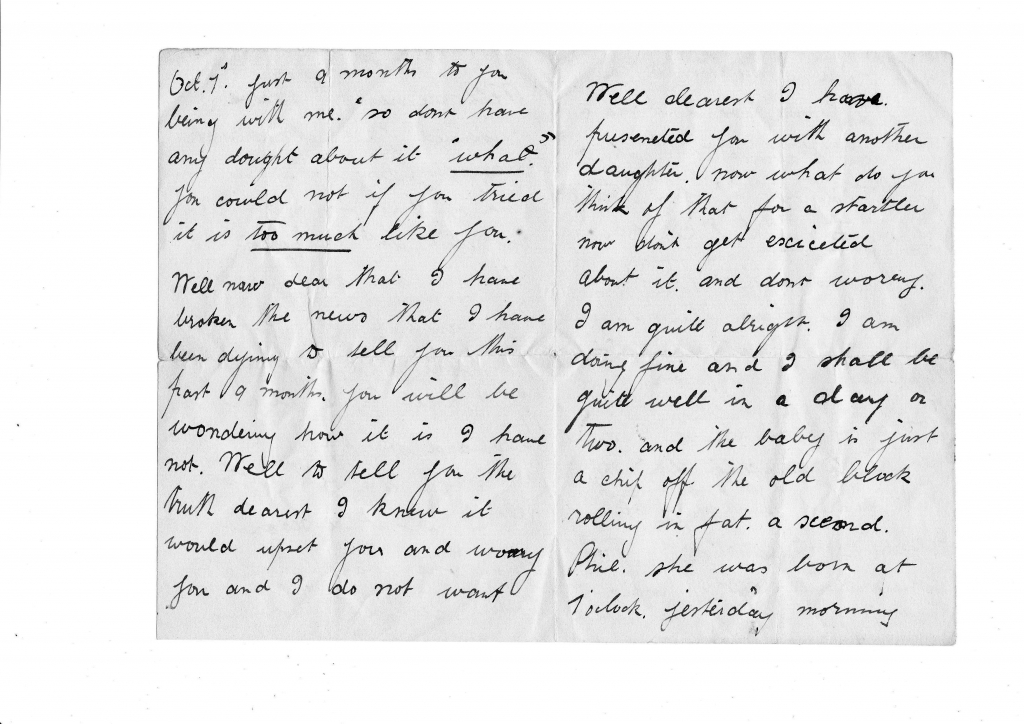 Oct. 1st. just 9 months to you
being with me. "so dont have
any dought about it "what."
you could not if you tried
it is too much like you.
Well now dear that I have
broken the news that I have
been dying to tell you this
past 9 months. you will be
wondering how it is I have
not. Well to tell you the
truth dearest I knew it
would upset you and worry
you and I do not want
Well dearest I have.
preseneted you with another
daughter. now what do you
think of that for a startler
now dont get exiceted
about it. and dont worrey.
I am quite alright. I am
doing fine and I shall be
quite well in a day or
two. and the baby is just
a chip off the old block
rolling in fat. a second.
Phil. she was born at
1 oclock. yesterday morning